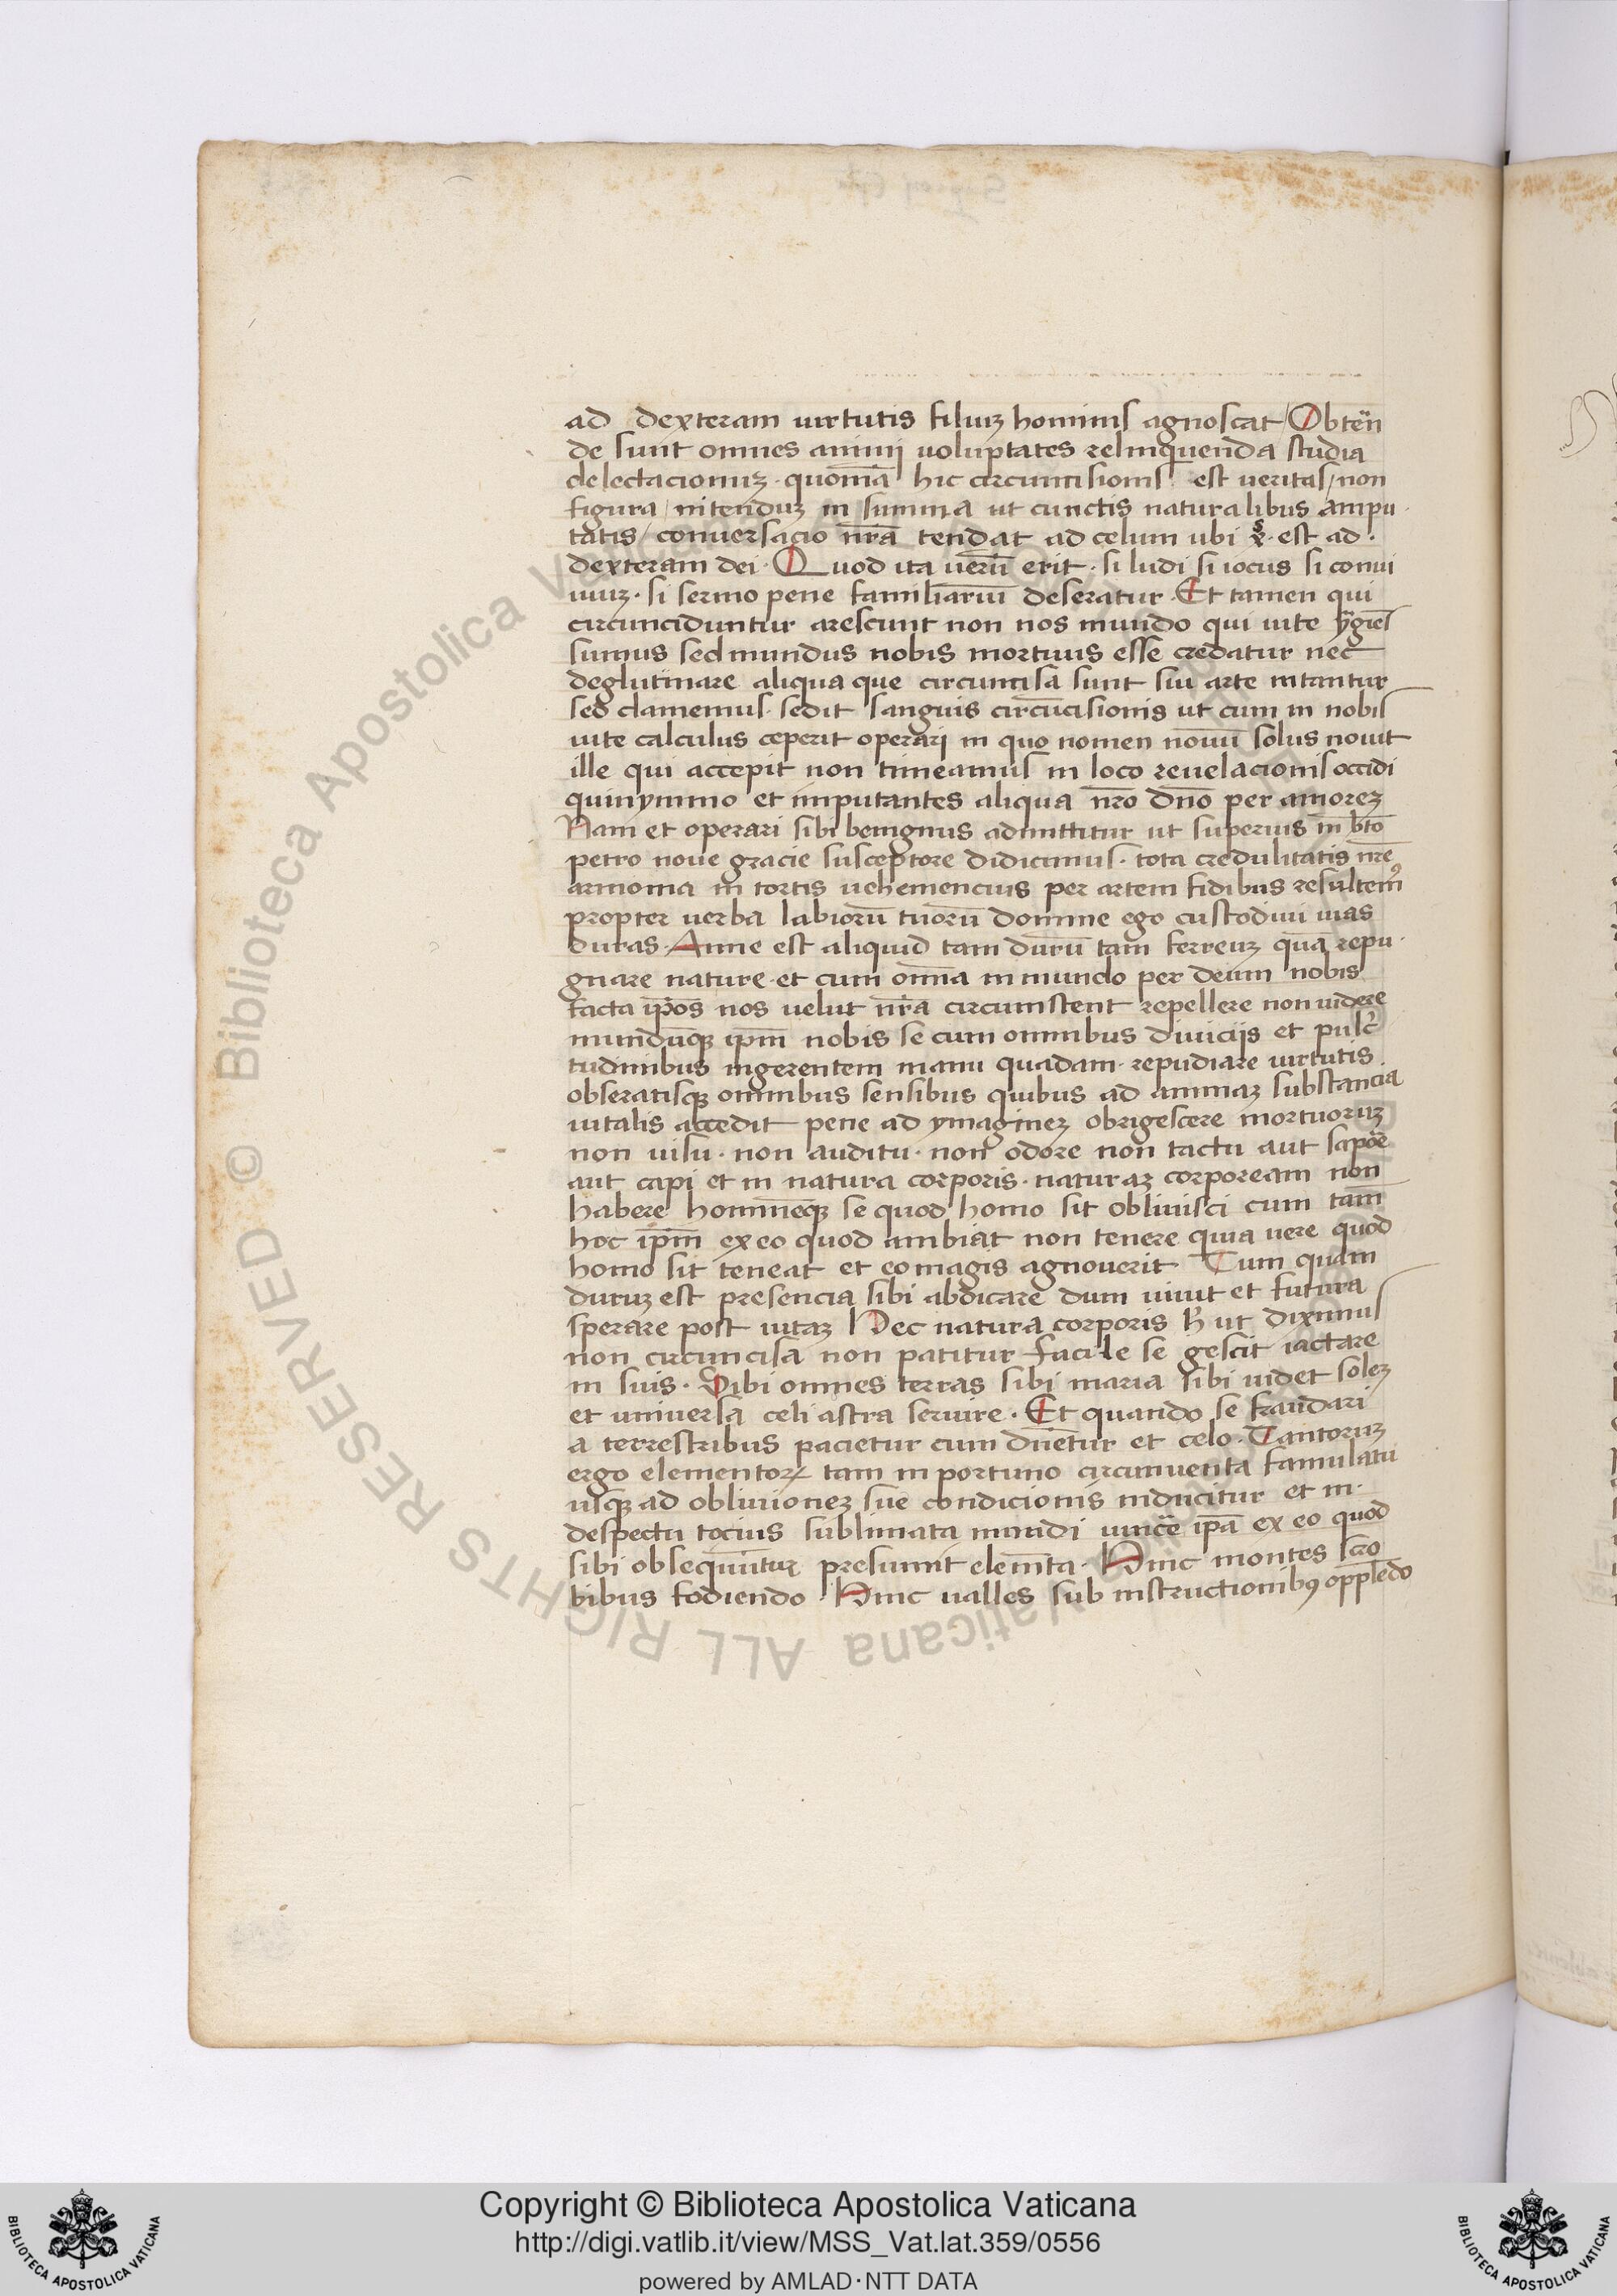 ad dexteram uirtutis filiuꝫ hominis agnoscat / Obten
de sunt omnes animi uoluptates relinquenda studia
delectacionuꝫ · quoniā hic circumcisionis est ueritas / non
figura / nitenduꝫ in summa ut cunctis naturalibus ampu
tatis / conuersacio nr̄a tendat ad celum ubi · est ad ·
dexteram dei · Quod ita uerū erit · si ludi si iocus si conui
uiuꝫ · si sermo pene familiariū deseratur · Et tamen qui
circunciduntur arescunt non nos mundo qui uite
sumus sed mundus nobis mortuus esse credatur nec
deglutinare aliqua que circumcisa sunt sui arte nitantur
sed clamemus · sedit sanguis circūcisionis ut cum in nobis
uite calculus ceperit operari in quo nomen nouū solus nouit
ille qui accepit non timeamus in loco reuelacionis occidi
quinymmo et imputantes aliqua nr̄o dn̄o per amoreꝫ
Nam et operari sibi benignius admittitur ut superius in bt̄o
petro noue gracie susceptore didicimus · tota credulitatis nr̄e
armonia in tortis uehemencius per artem fidibus resultem⁹
propter uerba labiorū tuorū domine ego custodiui uias
duras · Anne est aliquid tam durū tam ferreuꝫ quā repu ·
gnare nature · et cum om̄ia in mundo per deum nobis
facta ip̄os nos uelut nr̄a circumstent repellere non uidere
mundūqꝫ ip̄m nobis se cum omnibus diuicijs et pulc̄
tudinibus ingerentem manu quadam · repudiare uirtutis
obseratisqꝫ omnibus sensibus quibus ad animaꝫ substancia
uitalis accedit pene ad ymagineꝫ obrigescere mortuoruꝫ
non uisu · non auditu · non odore non tactu aut sapōe
aut capi et in natura corporis · naturaꝫ corpoream non
habere hominēqꝫ se quod homo sit obliuisci cum tam̄
hoc ip̄m ex eo quod ambiat non tenere quia uere quod
homo sit teneat et eo magis agnouerit Tum quam
duruꝫ est presencia sibi abdicare dum uiuit et futura
sperare post uitaꝫ Nec natura corporis ut diximus
non circuncisa non patitur facile se gescit iactare
in suis · Sibi omnes terras sibi maria sibi uidet soleꝫ
et uniuersa celi astra seruire · Et quando se fraudari
a terrestribus pacietur cum dn̄etur et celo · Tantoruꝫ
ergo elementoꝝ tam inportuno circumuenta famulatu
usqꝫ ad oblinioneꝫ sue condicionis inducitur et in ·
despectu tocius sublimata mundi ip̄a ex eo quod
sibi obsequūtur presumit elem̄ta · Hinc montes
bibus fodiendo · Hinc ualles sub instructionib⁹ opplēdo
Copyright © Biblioteca Apostolica Vaticana
http://digi.vatlib.it/view/MSS_Vat.lat.359/0556
powered by AMLAD·NTT DATA
BIBLIOTECA APOSTOLICA VATICANA
BIBLIOTECA APOSTOLICA VATICANA
© Biblioteca Apostolica Vaticana ALL RIGHTS RESERVED